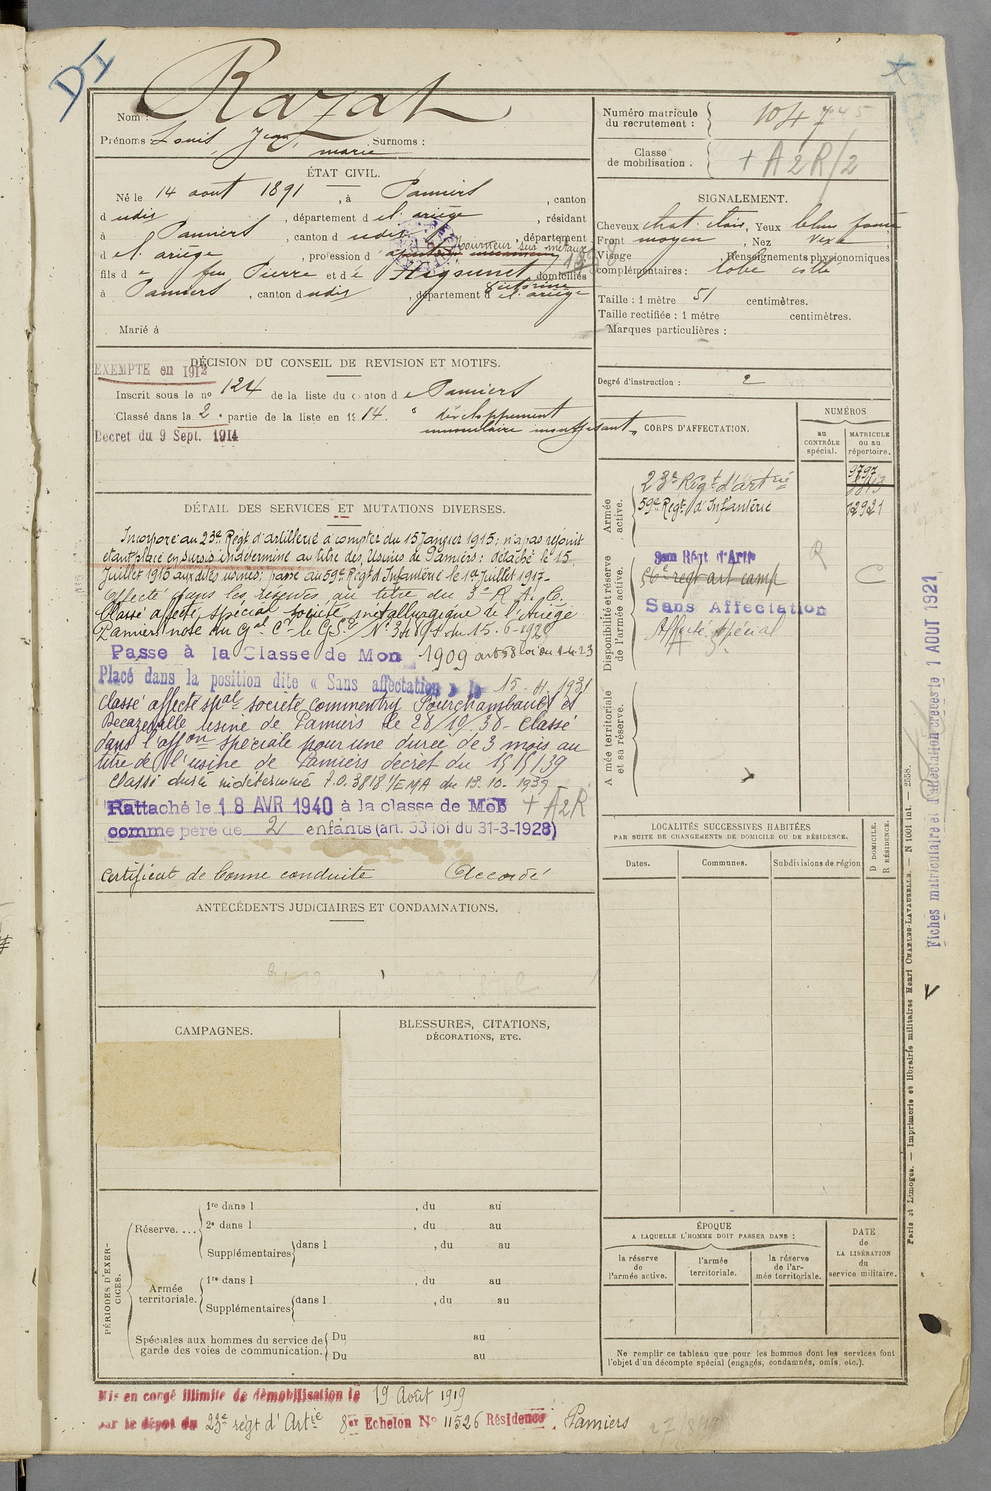 DI
Nom : Razat
Prénoms : Louis, Jean, marie Surnoms :
ÉTAT CIVIL.
Né le 14 aout 1891, à Pamiers, canton
dudit, département de l'ariège, résidant
à Pamiers, canton dudit, département
de l'ariège, profession d tourneur sur métaux
fils de feu Pierre et de Victorine domiciliés
à Pamiers, canton dudit, département de l'ariège
Marié à
DÉCISION DU CONSEIL DE REVISION ET MOTIFS.
EXEMPTE en 1912
Inscrit sous le no 124 de la liste du canton de Pamiers
Classé dans la 2e partie de la liste en 1914. développement
musculaire insuffisant
Decret du 9 Sept. 1914
DÉTAIL DES SERVICES ET MUTATIONS DIVERSES.
Incorporé au 23e Régt d'artillerie à compter du 15 Janvier 1915; n'a pas rejoint
étant placé en sursis indéterminé au titre des Usines de Pamiers; détaché le 15
Juillet 1915 aux dites usines; passé au 59e Régt d'Infanterie le 1er Juillet 1917-
Affecté dans les réserves au titre du 3e R.A.C.
Classé affecté spécial société métallurgique de l'Ariège
Pamiers note du Gal Ct le G.S. du 15-6-192
Passe à la Classe de Mon 1909 art 58 loi du 1-4-23
Placé dans la position dite « Sans affectation » le 15-4-1931
Classé affecté spal société Commentry Fourchambault et
Decazeville usine de Pamiers le 28/10/38- Classé
dans l'affon spéciale pour une durée de 3 mois au
titre de l'usine de Pamiers décret du
Classé durée indéterminé T.O. 3818 1/EMA du 13.10-1939
Rattaché le 18 AVR 1940 à la classe de MOB + A2R
comme père de 2 enfants (art. 33 loi du 31-3-1928)
Certificat de bonne conduite Accordé
ANTÉCÉDENTS JUDICIAIRES ET CONDAMNATIONS.
CAMPAGNES.
BLESSURES, CITATIONS,
DÉCORATIONS, ETC.
PÉRIODES D'EXERCICES.
Réserve....
1re dans l , du au
2e dans l , du au
Supplémentaires dans l , du au
Armée
territoriale.
1re dans l , du au
Supplémentaires dans l , du au
Spéciales aux hommes du service de
garde des voies de communication.
Du au
Du au
Mis en congé illimité de démobilisation le 19 Août 1919
par le dépot du 23e régt d'Artie 8er Echelon No 11526 Résidence Pamiers
Numéro matricule
du recrutement : 1047
Classe
de mobilisation. + A2R/2
SIGNALEMENT.
Cheveux chat. clair, Yeux bleu foncé
Front moyen, Nez vexe
Visage , Renseignements physionomiques
complémentaires : lobe collé
Taille : 1 mètre 51 centimètres.
Taille rectifiée : 1 mètre centimètres.
Marques particulières :
Degré d'instruction : 2
CORPS D'AFFECTATION.
NUMÉROS
au
CONTRÔLE
spécial.
MATRICULE
ou au
répertoire.
Armée
active.
23e Régt d'artrie 9797
59e Régt d'Infanterie 12921
Disponibilité et réserve
de l'armée active.
3em Régt d'Artie R
56e régt art camp C
Sans Affectation
Affecté spécial
Armée territoriale
et sa réserve.
LOCALITÉS SUCCESSIVES HABITÉES
PAR SUITE DE CHANGEMENTS DE DOMICILE OU DE RÉSIDENCE.
Dates.
Communes.
Subdivisions de région
D DOMICILE.
R RÉSIDENCE.
ÉPOQUE
A LAQUELLE L'HOMME DOIT PASSER DANS :
la réserve
de
l'armée active.
l'armée
territoriale.
la réserve
de l'ar-
mée territoriale.
DATE
de
LA LIBÉRATION
du
service militaire.
Ne remplir ce tableau que pour les hommes dont les services font
l'objet d'un décompte spécial (engagés, condamnés, omis, etc.).
Paris et Limoges. — Imprimerie et librairie militaires Henri CHARLES-LAVAUZELLE. — N 1001 int. — 2558.
Fiches matriculaire et d'affectation créées le 1 AOUT 1921